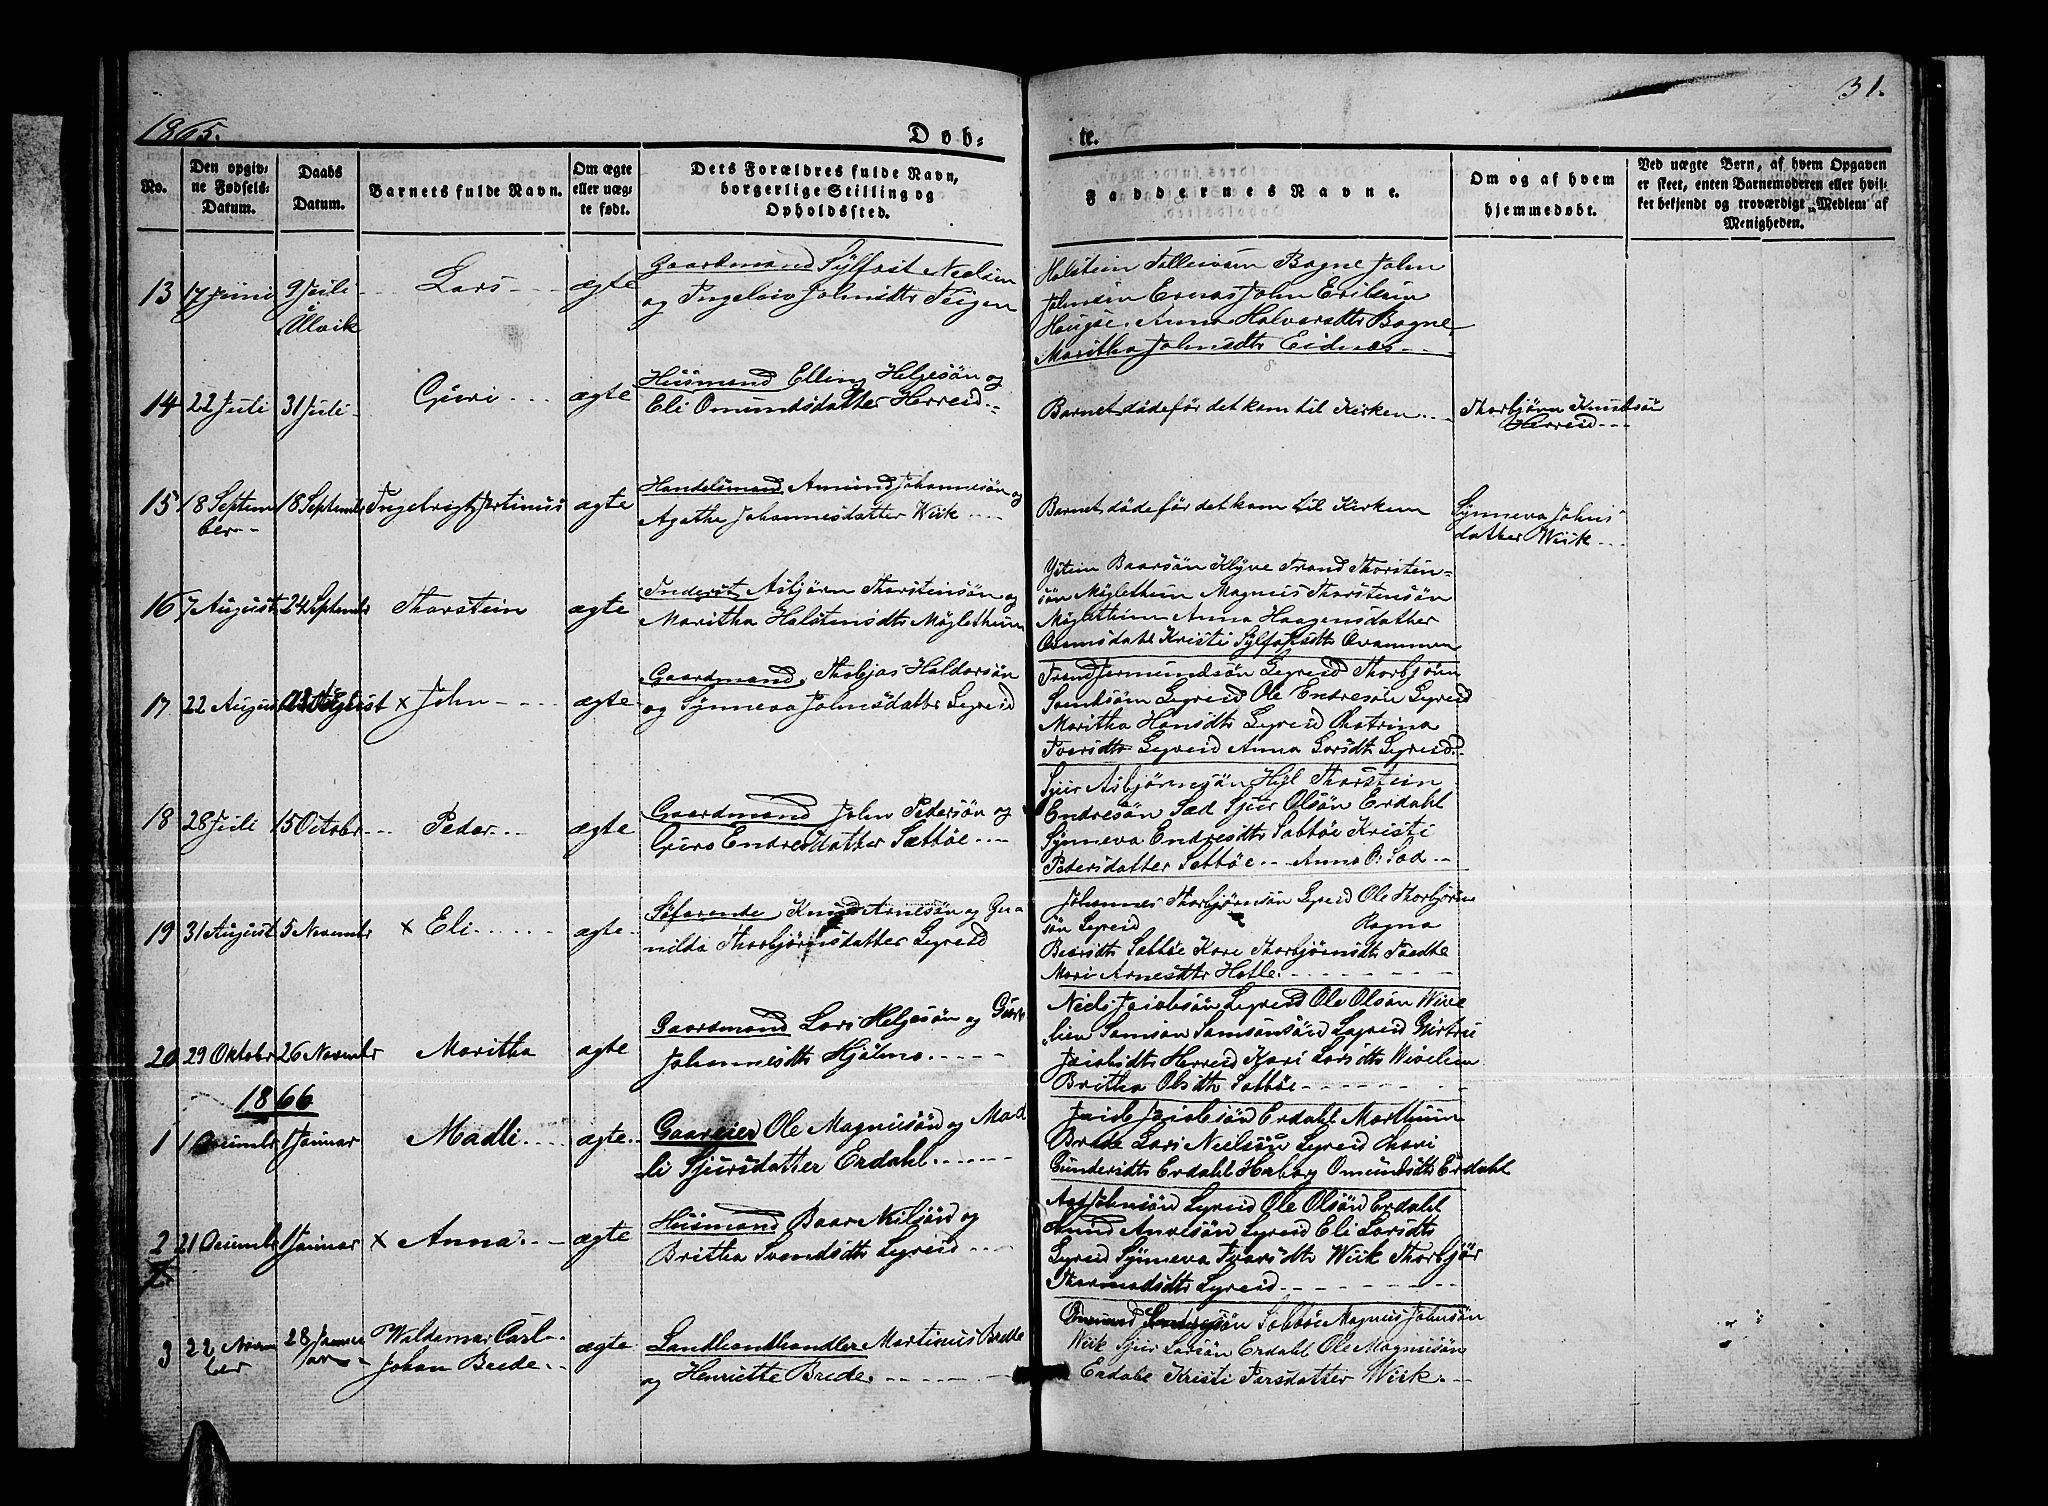 1865.
Døb-
te.
31.
No.
Den opgiv-
ne Fødsels-
Datum.
Daabs
Datum.
Barnets fulde Navn.
Om ægte
eller uæg-
te født.
Dets Forældres fulde Navn,
borgerlige Stilling og
Opholdssted.
Faddernes Navne.
Om og af hvem
hjemmedøbt.
Ved uægte Børn, af hvem Opgaven
er skeet, enten Barnemoderen eller hvil-
ket bekjendt og troværdigt Medlem af
Menigheden.
13 17 Juni 9 Juli Lars ægte Gaardmand Sylfest Nielsen
Ulvik og Ingeleiv Johnsdtr Teigen
Halstein Tolleivsen Bagne John
Johnsen Ernes John Eriksen
Haugse. Anna Halvarsdtr Bagne
Maritha Johnsdtr Eidnes
14 22 Juli 31 Juli Guri ægte Husmand Elling Helgesøn og
Eli Omundsdatter Herreid
Barnet døde før det kom til Kirken
Thorbjørn Knudsøn
Herreid
15 18 Septem 18 Septembr Ingebrigt Martinus ægte Handelsmand Amund Johannesøn og
ber Agatha Johannesdatter Wiik
Barnet døde før det kom til Kirken
Synneva Johns
datter Wiik
16 7 August 24 Septembr Thorstein ægte Inderst Asbjørn Thorsteinsøn og
Maritha Halstensdtr Møglethun
Ystein Baarsøn Klyve Trond Thorstein-
søn Møglethun Magnus Thorsteinsøn
Møglethun Anna Haagensdatter
Osmsdatl Kristi Sylfæstdtr Qvammen
17 22 August August x John ægte Gaardmand Thobjas Haldorsøn
og Synneva Johnsdatter Lyreid
Trond Jermundsøn Lyreid Thorbjørn
Samsøn Lyreid Ole Endresøn Lyreid
Maritha Hansdtr Lyreid Chatrina
Ivarsdtr Lyreid Anna Larsdtr Lyreid
18 28 Juli 15 Octobr Peder ægte Gaardmand John Pedersøn og
Guro Endresdatter Sæbbøe
Sjur Asbjørnsøn Hyl Thorstein
Endresøn Sæd Sjur Olsøn Erdahl
Synneva Endresdtr Sæbbøe Kristi
Pedersdatter Sæbbøe Anna O. Sæd
19 31 August 5 Novembr x Eli ægte Søfarende Knud Arnesøn og Gu
nilda Thorbjørnsdatter Lyreid
Johannes Thorbjørnsøn Lyreid Ole Thorbjørn
søn Lyreid Ragna
Baarsdtr Sæbbøe Kari Thorbjørnsdtr
Mari Arnesdtr Hotle
20 29 Oktobr 26 Novembr Maritha ægte Gaardmand Lars Helgesøn og
Johannesdtr Hjølmo
Niels Jacobsøn Lyreid Ole Olsøn Wive
lien Samson Samsonsøn Lyreid Girtru
Jacobsdtr Herreid Kari Larsdtr Wivelien
Britha Olsdtr Sæbbøe
1866
1 1 Decembr 1 Januar Madli ægte Gaareier Ole Magnusøn og Mad
li Sjursdatter Erdahl
Jacob Jacobsøn Erdahl Marthinu
Brede Lars Nielsøn Lyreid Kari
Gundersdtr Erdahl Herborg Omundsdtr Erdahl
2 21 Decembr 1 Januar x Anna ægte Husmand Baar Nilsøn og
Britha Svendsdtr Lyreid
Johnsøn Lyreid Ole Olsøn Erdahl
Amund Amelsøn Lyreid Eli Larsdtr
Lyreid Synneva Ivarsdtr Wiik Thorbjør
Thormodsdtr Lyreid
3 22 Novem 28 Janu Waldemar Carl ægte Landhandler Martinus Brede
ber ar Johan Brede og Henriette Brede
Omund Sæbbøe Magnus Johnsøn
Wiik Sjur Larsøn Erdahl Ole Magnusøn
Erdahl Kristi Larsdatter Wiik